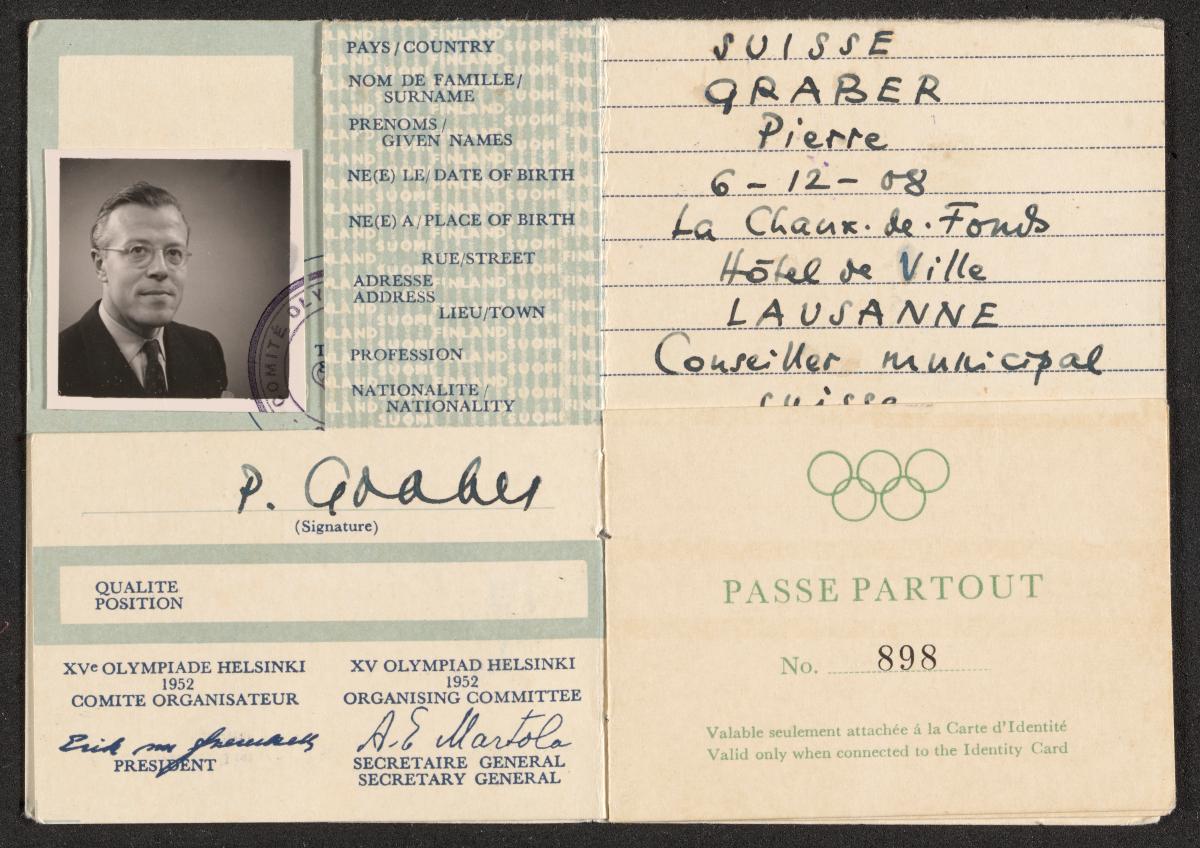 PAYS / COUNTRY
SUISSE
NOM DE FAMILLE /
SURNAME
GRABER
PRENOMS /
GIVEN NAMES
Pierre
NE(E) LE / DATE OF BIRTH
6-12-08
NE(E) A / PLACE OF BIRTH
La Chaux-de-Fonds
RUE/STREET
ADRESSE
ADDRESS
Hôtel de Ville
LIEU/TOWN
LAUSANNE
PROFESSION
Conseiller municipal
NATIONALITE /
NATIONALITY
suisse
COMITÉ OLY
P. Graber
(Signature)
QUALITE
POSITION
XVe OLYMPIADE HELSINKI
1952
COMITE ORGANISATEUR
PRESIDENT
XV OLYMPIAD HELSINKI
1952
ORGANISING COMMITTEE
A.E Martola
SECRETAIRE GENERAL
SECRETARY GENERAL
PASSE PARTOUT
No. 898
Valable seulement attachée á la Carte d'Identité
Valid only when connected to the Identity Card